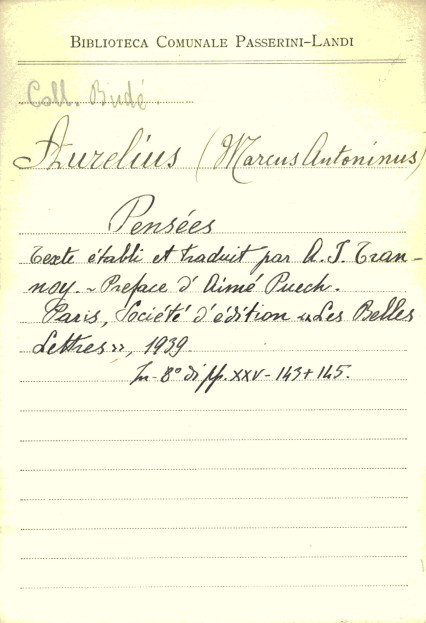 BIBLIOTECA COMUNALE PASSERINI-LANDI
Coll. Budé.
Aurelius (Marcus Antoninus)
Pensées
Texte établi et traduit par A. I. Tran-
noy. - Preface d'Aimé Puech.
Paris, Société d'édition «Les Belles
Lettres», 1939.
In-8° di pp. XXV-143+145.